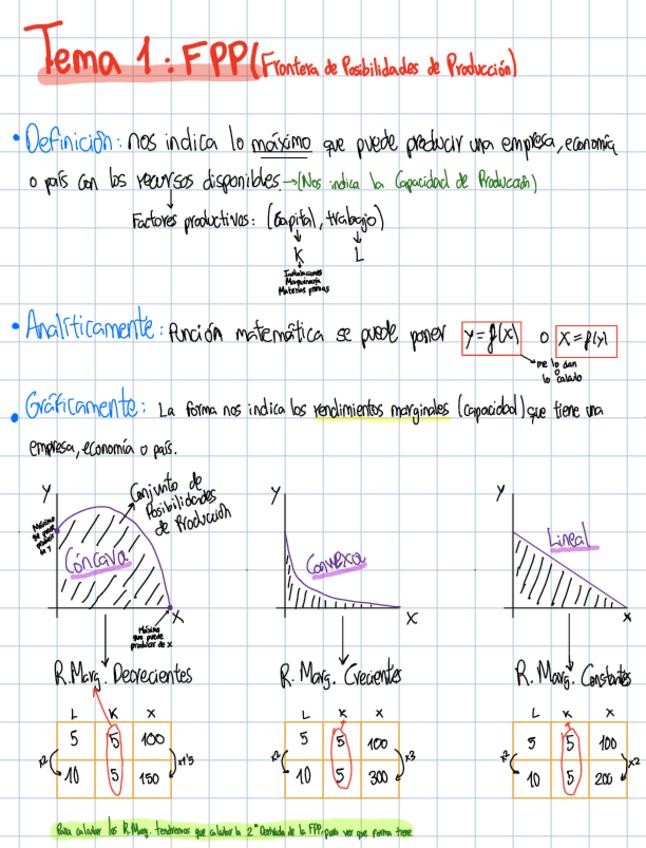 Tema 1: FPP (Frontera de Posibilidades de Producción)
• Definición: nos indica lo máximo que puede producir una empresa, economía
o país con los recursos disponibles. → (Nos indica la Capacidad de Producción)
Factores productivos: (Capital, trabajo)
K L
Instalaciones
Maquinaria
Materias primas
• Analíticamente: función matemática se puede poner y = f(x) o x = f(y)
me lo dan
o
lo calculo
• Gráficamente: La forma nos indica los rendimientos marginales (capacidad) que tiene una
empresa, economía o país.
Y
Máximo
que puede
producir
de Y
Cóncava
Conjunto de
Posibilidades
de Producción
X
Máximo
que puede
producir de x
Y
Convexa
X
Y
Lineal
X
R. Marg. Decrecientes
R. Marg. Crecientes
R. Marg. Constantes
L K X
5 5 100
x2 10 5 150 x1'5
L K X
5 5 100
x2 10 5 300 x3
L K X
5 5 100
x2 10 5 200 x2
Para calcular los R.Marg. tendremos que calcular la 2ª Derivada de la FPP, para ver que forma tiene